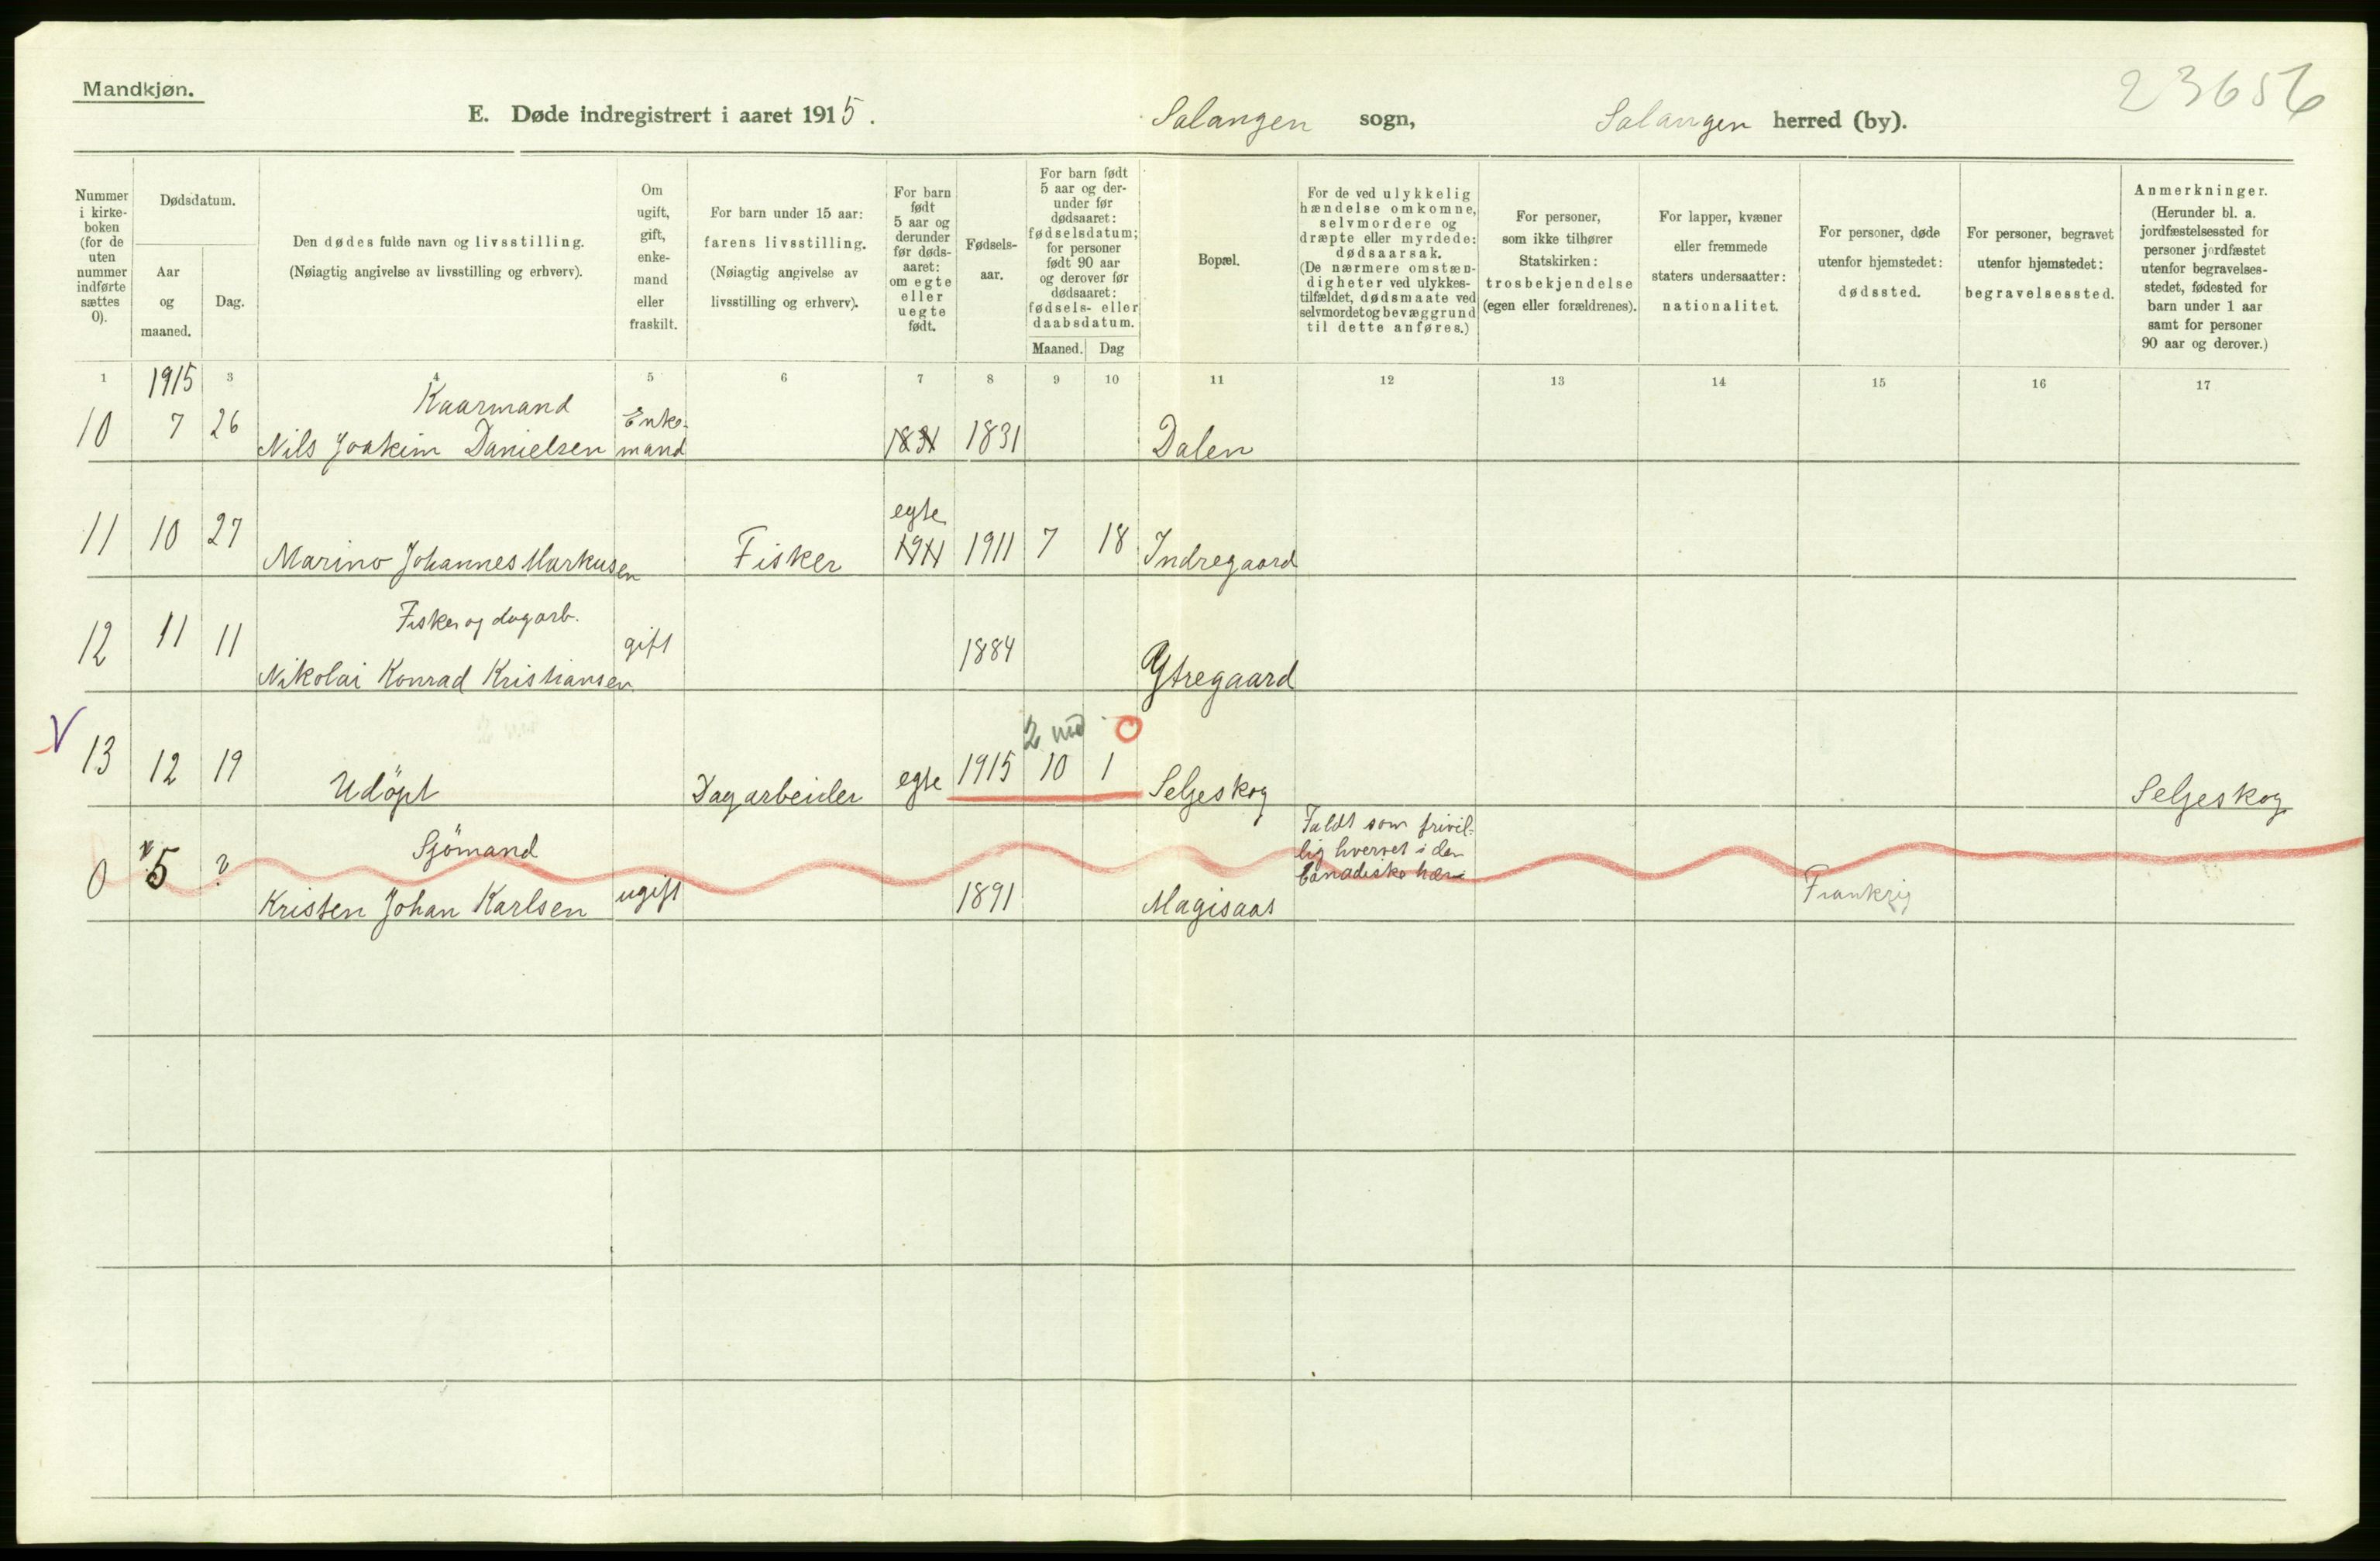 Mandkjøn.
23656
E. Døde indregistrert i aaret 1915. Salangen sogn, Salangen herred (by).
Nummer i kirke- boken (for de uten nummer indførte sættes 0).
Dødsdatum.
Aar og maaned.
Dag.
Den dødes fulde navn og livsstilling.
(Nøiagtig angivelse av livsstilling og erhverv).
Om ugift, gift, enke- mand eller fraskilt.
For barn under 15 aar: farens livsstilling.
(Nøiagtig angivelse av livsstilling og erhverv).
For barn født 5 aar og derunder før døds- aaret: om egte eller uegte født.
Fødsels- aar.
For barn født 5 aar og der- under før dødsaaret: fødselsdatum; for personer født 90 aar og derover før dødsaaret: fødsels- eller daabsdatum.
Maaned. Dag
Bopæl.
For de ved ulykkelig hændelse omkomne, selvmordere og dræpte eller myrdede: dødsaarsak.
(De nærmere omstæn- digheter ved ulykkes- tilfældet, dødsmaate ved selvmordet og bevæggrund til dette anføres.)
For personer, som ikke tilhører Statskirken: trosbekjendelse (egen eller forældrenes).
For lapper, kvæner eller fremmede staters undersaatter: nationalitet.
For personer, døde utenfor hjemstedet: dødssted.
For personer, begravet utenfor hjemstedet: begravelsessted.
Anmerkninger.
(Herunder bl. a. jordfæstelsessted for personer jordfæstet utenfor begravelses- stedet, fødested for barn under 1 aar samt for personer 90 aar og derover.)
1 3 4 5 6 7 8 9 10 11 12 13 14 15 16 17
1915
Kaarmand
10 7 26 Nils Joakim Danielsen Enke- mand 1831 1831 Dalen
egte
11 10 27 Marino Johannes Markusen Fisker 1911 1911 7 18 Indregaard
Fisker og dagarb.
12 11 11 Nikolai Konrad Kristiansen gift 1884 Ytregaard
2 md
V 13 12 19 Udöpt Dagarbeider egte 1915 10 1 Seljeskog Seljeskog
Sjömand
0 5 ? Kristen Johan Karlsen ugift 1891 Magisaas
Faldt som frivil-
lig hvervet i den
Canadiske hær
Frankrig